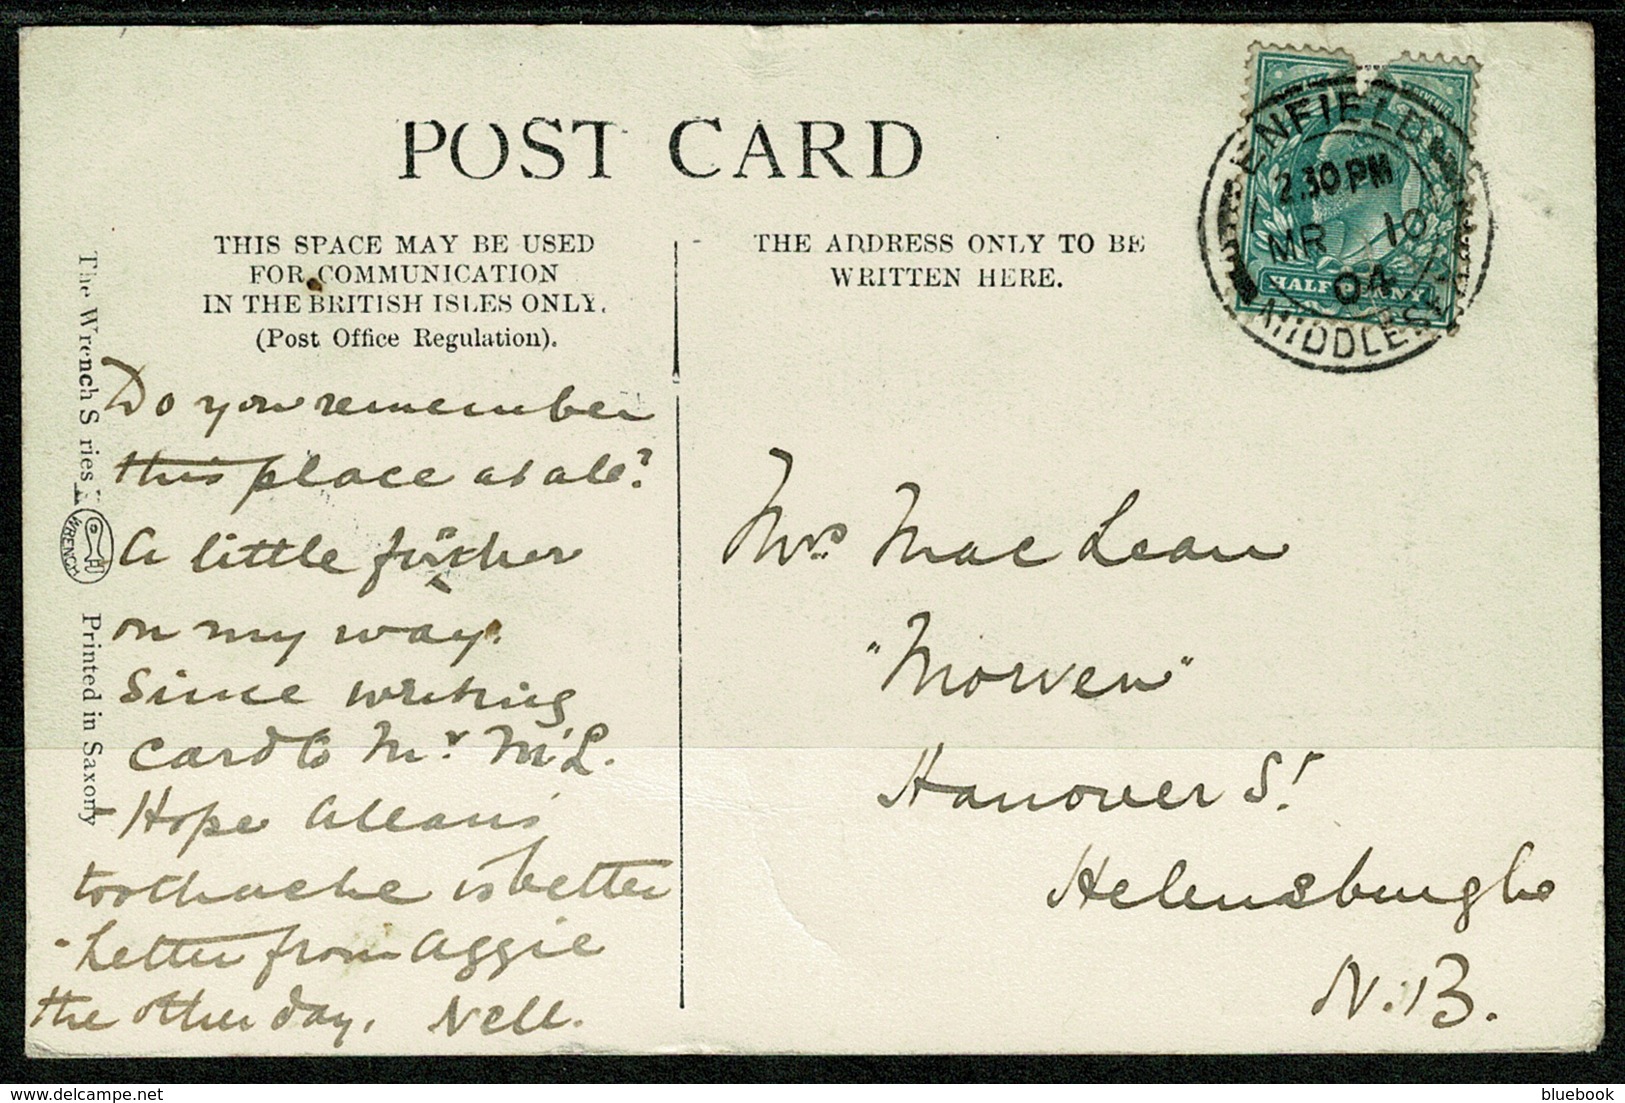 POST CARD
THIS SPACE MAY BE USED
FOR COMMUNICATION
IN THE BRITISH ISLES ONLY.
(Post Office Regulation).
THE ADDRESS ONLY TO BE
WRITTEN HERE.
ENFIELD
2.30 PM
MR 10
04
MIDDLESEX
HALFPENNY
The Wrench Series
WRENCH
Printed in Saxony
Do you remember
this place at all?
A little further
on my way.
Since writing
card to Mr McL.
- Hope Allan's
toothache is better
- Letter from Aggie
the other day. Nell.
Mrs MacLean
"Morven"
Hanover St
Helensburgh
N.B.
bluebook